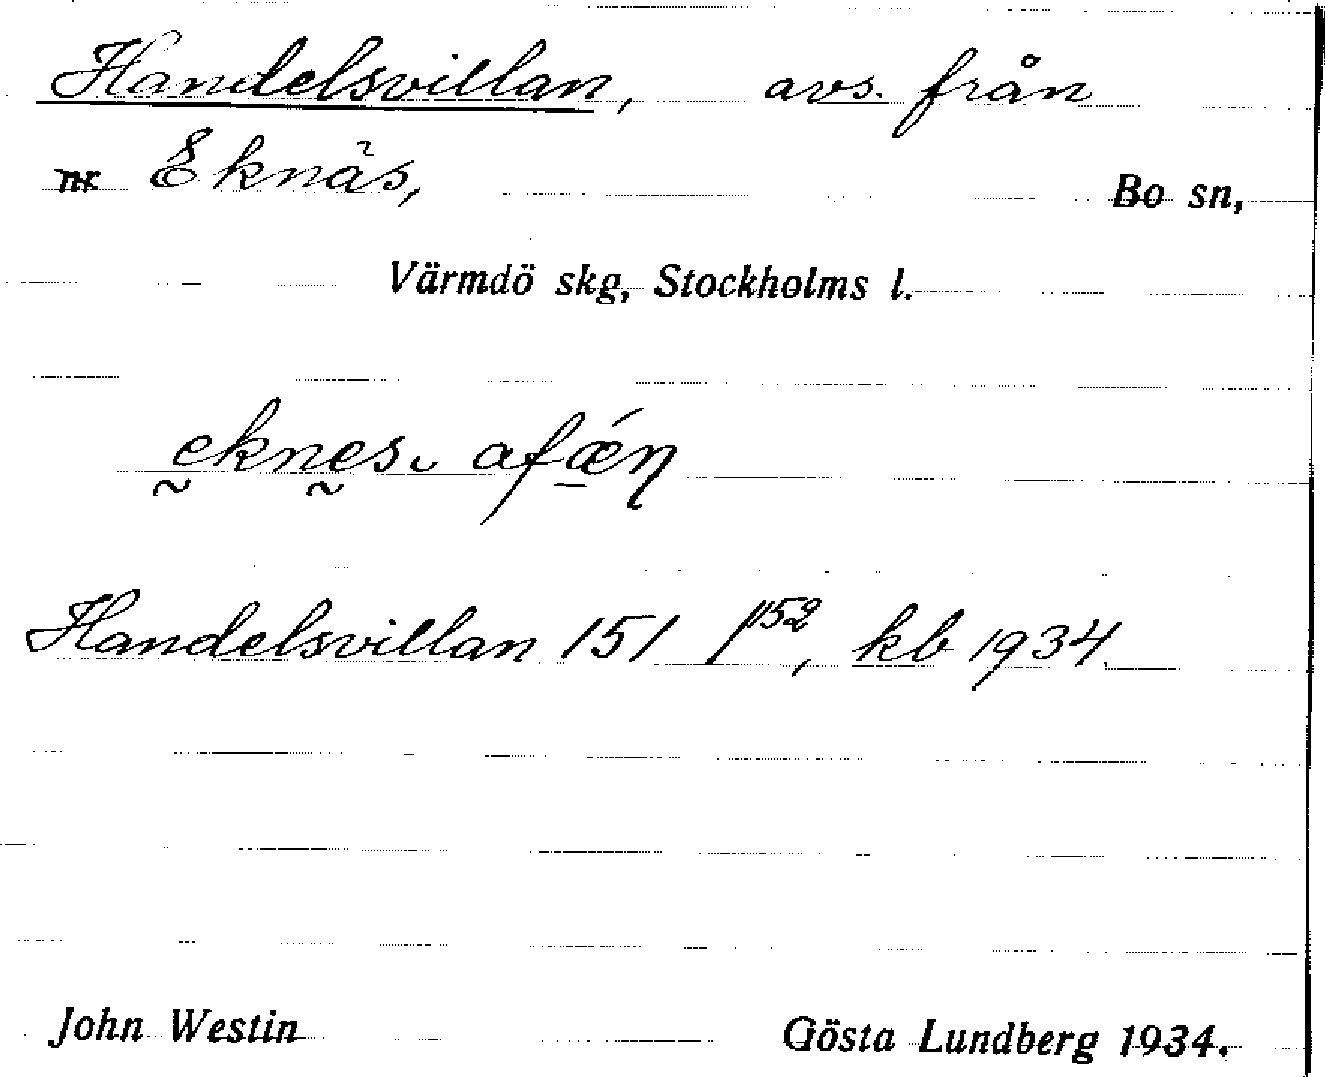 Handelsvillan, avs. från
nr Eknäs, Bo sn,
Värmdö skg, Stockholms l.
eknes. afǽn
Handelsvillan 151 1152, kb 1934.
John Westin Gösta Lundberg 1934.